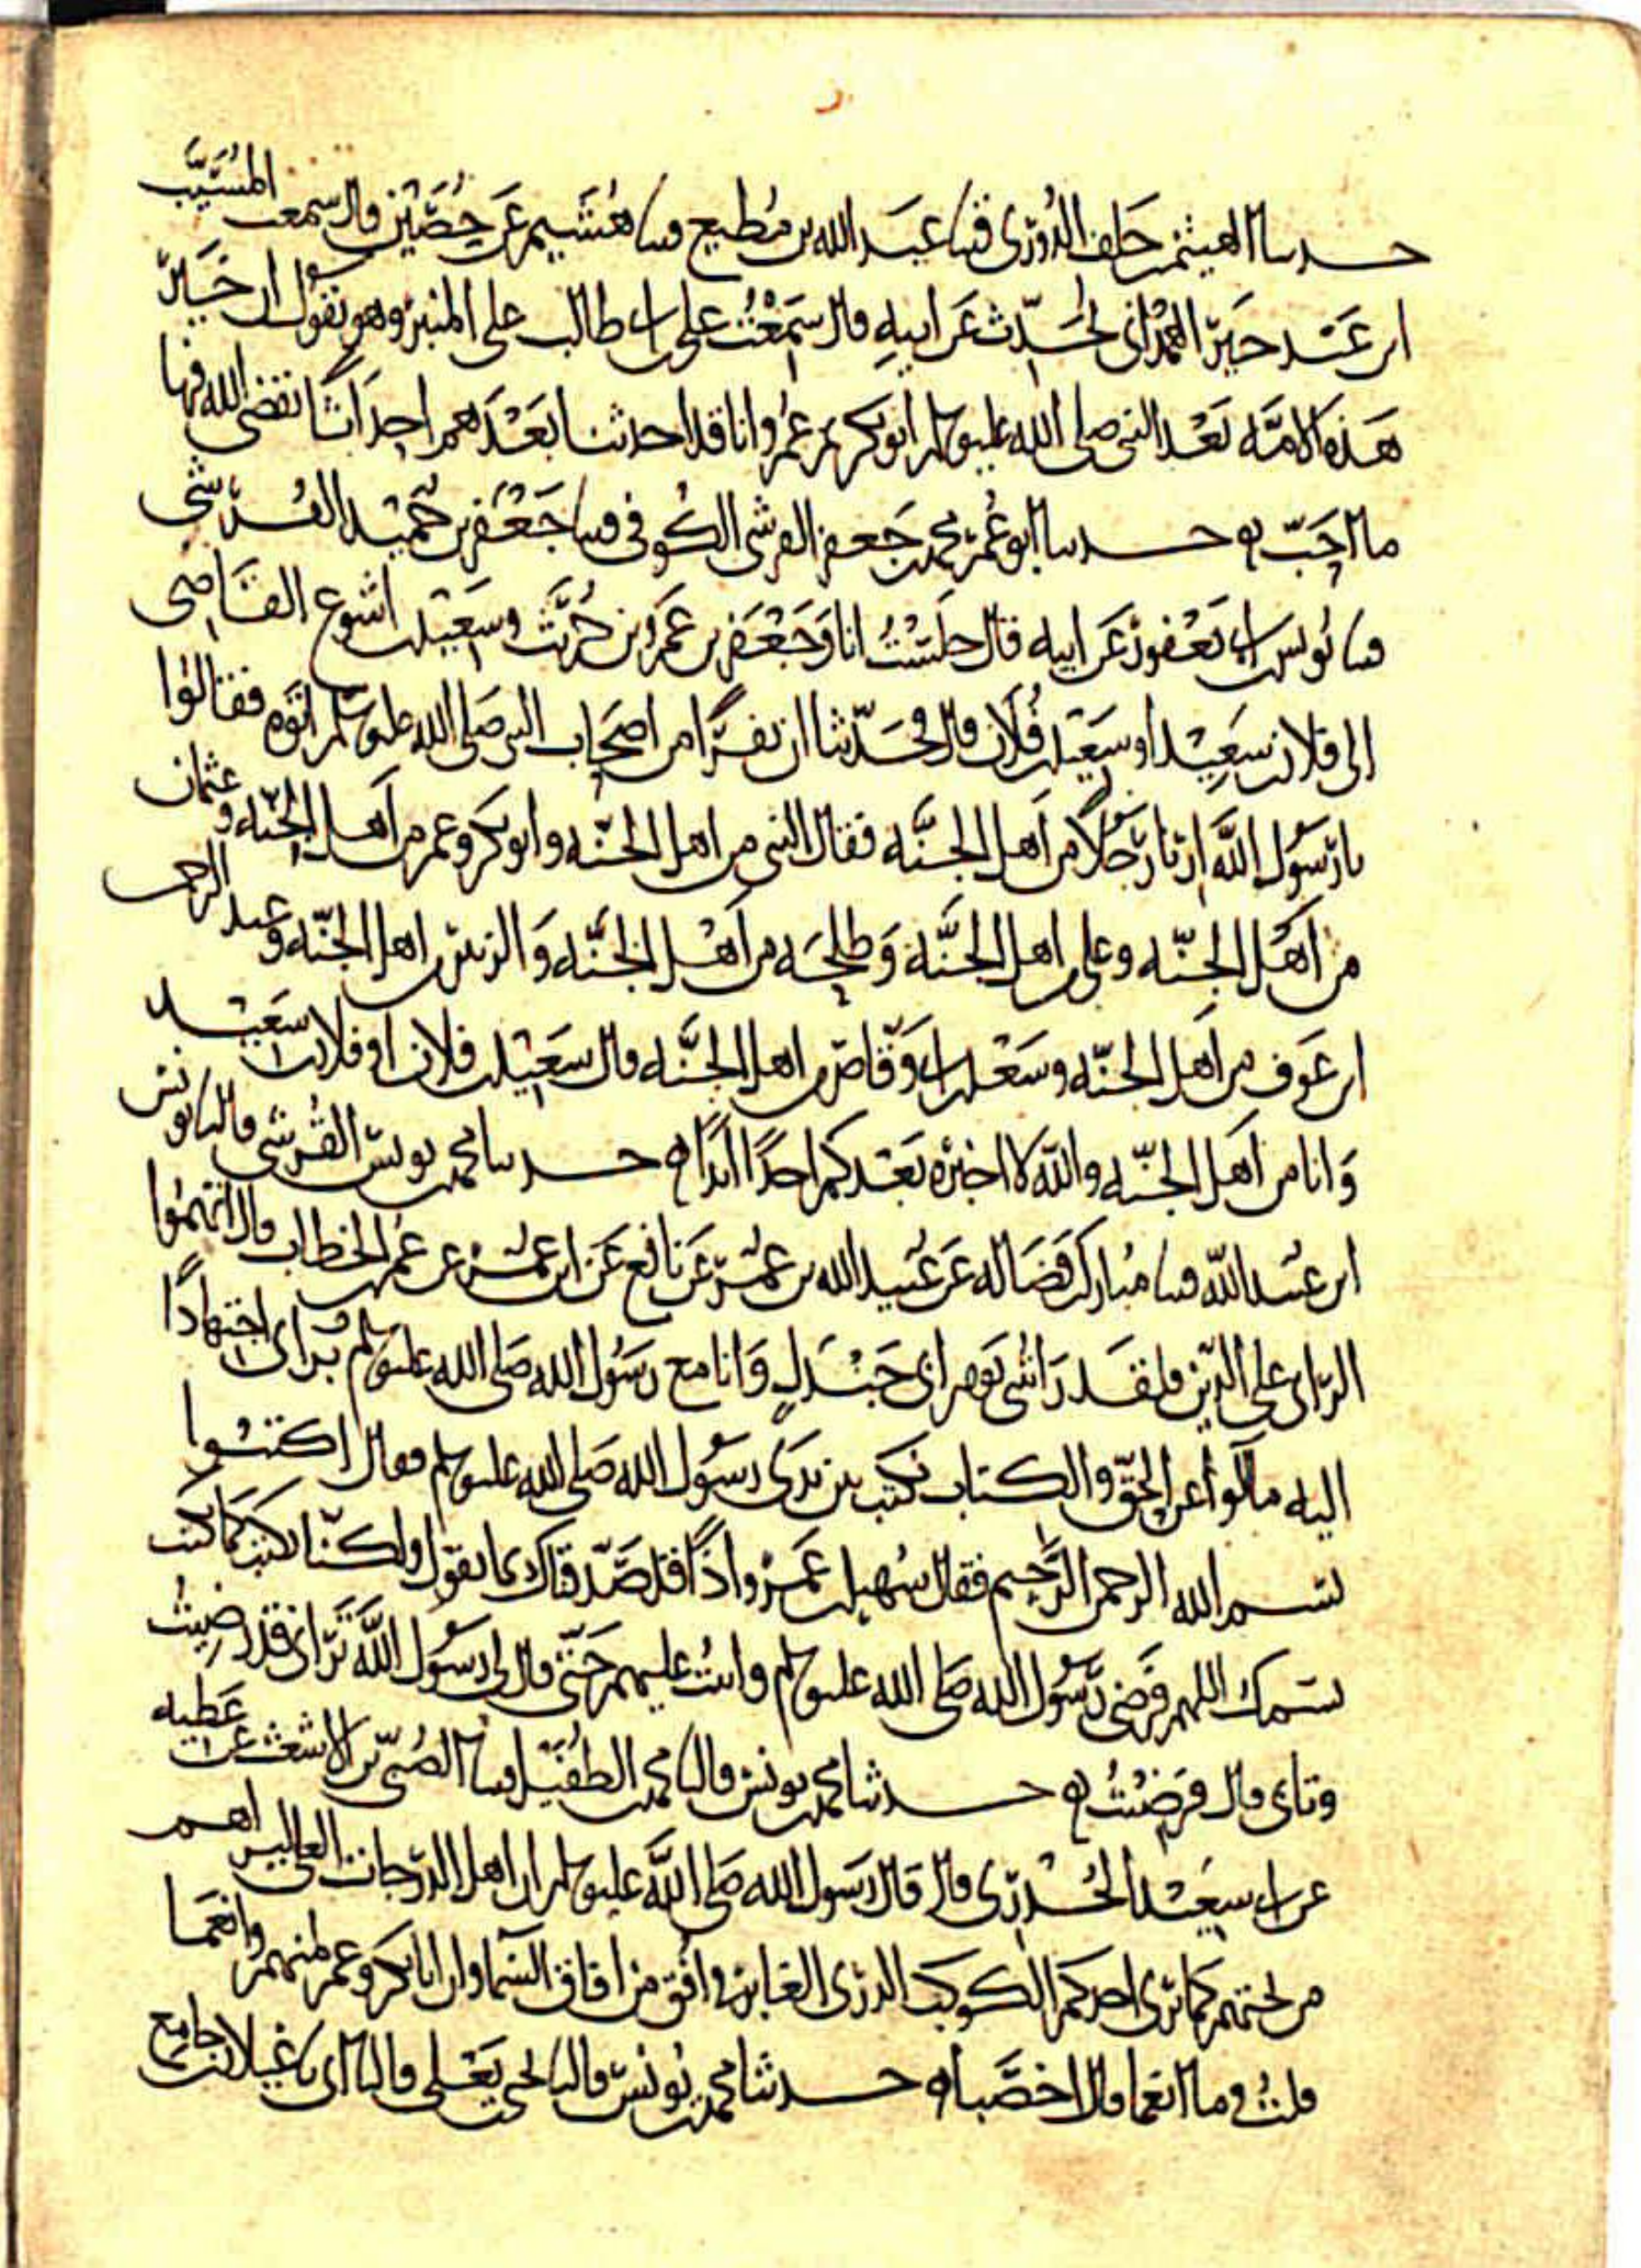 حدثنا الهيثم بن خلف الدوري قثنا عبد الله بن مطيع قثنا هشيم عن حصين قال سمعت المسيب
ابن عبد خير الهمداني يحدث عن ابيه قال سمعت علي بن ابي طالب على المنبر وهو يقول ان خير
هذه الامة بعد النبي صلى الله عليه وسلم ابو بكر ثم عمر وانا قد احدثنا بعدهم احداثا يقضي الله فيها
ما احب ه حدثنا ابو عمر محمد بن جعفر القرشي الكوفي قثنا جعفر بن حميد القرشي
قثنا يونس بن ابي يعفور عن ابيه قال جلست انا وجعفر بن عمرو بن حريث وسعيد بن اشوع القاضي
الى فلان بن سعيد او سعيد بن فلان قال فحدثنا ان نفرا من اصحاب النبي صلى الله عليه وسلم اتوه فقالوا
يا رسول الله ارنا رجلا من اهل الجنة فقال النبي من اهل الجنة وابو بكر وعمر من اهل الجنة وعثمان
من اهل الجنة وعلي من اهل الجنة وطلحة من اهل الجنة والزبير من اهل الجنة وعبد الرحمن
ابن عوف من اهل الجنة وسعد بن ابي وقاص من اهل الجنة قال سعيد بن فلان او فلان بن سعيد
وانا من اهل الجنة والله لا اخبره بعدكم احدا ابدا ه حدثنا محمد بن يونس القرشي قال نا يونس
ابن عبيد الله قثنا مبارك بن فضالة عن عبيد الله بن عمر عن نافع عن ابن عمر عن عمر بن الخطاب قال اتهموا
الراي على الدين فلقد راتني يوم ابي جندل وانا مع رسول الله صلى الله عليه وسلم براي اجتهادا
اليه ما آلوا عن الحق والكتاب نكتب بين يدي رسول الله صلى الله عليه وسلم فقال اكتبوا
بسم الله الرحمن الرحيم فقال سهيل بن عمرو اذا قد صدقناك بما تقول ولكنا نكتب كما نكتب
بسمك اللهم فرضي رسول الله صلى الله عليه وسلم وابيت عليهم حتى قال لي رسول الله تراني قد رضيت
وتابى قال فرضيت ه حدثنا محمد بن يونس قال نا محمد بن الطفيل قثنا الصبي بن الاشعث عن عطية
عن ابي سعيد الخدري قال قال رسول الله صلى الله عليه وسلم ان اهل الدرجات العلى ليراهم
من تحتهم كما ترى احدكم الكوكب الدري الغابر في افق من افاق السماء وان ابا بكر وعمر لمنهم وانعما
قلت وما انعما قال اخصبا ه حدثنا محمد بن يونس قال نا يحيى بن يعلى قال نا ابي نا غيلان بن جامع